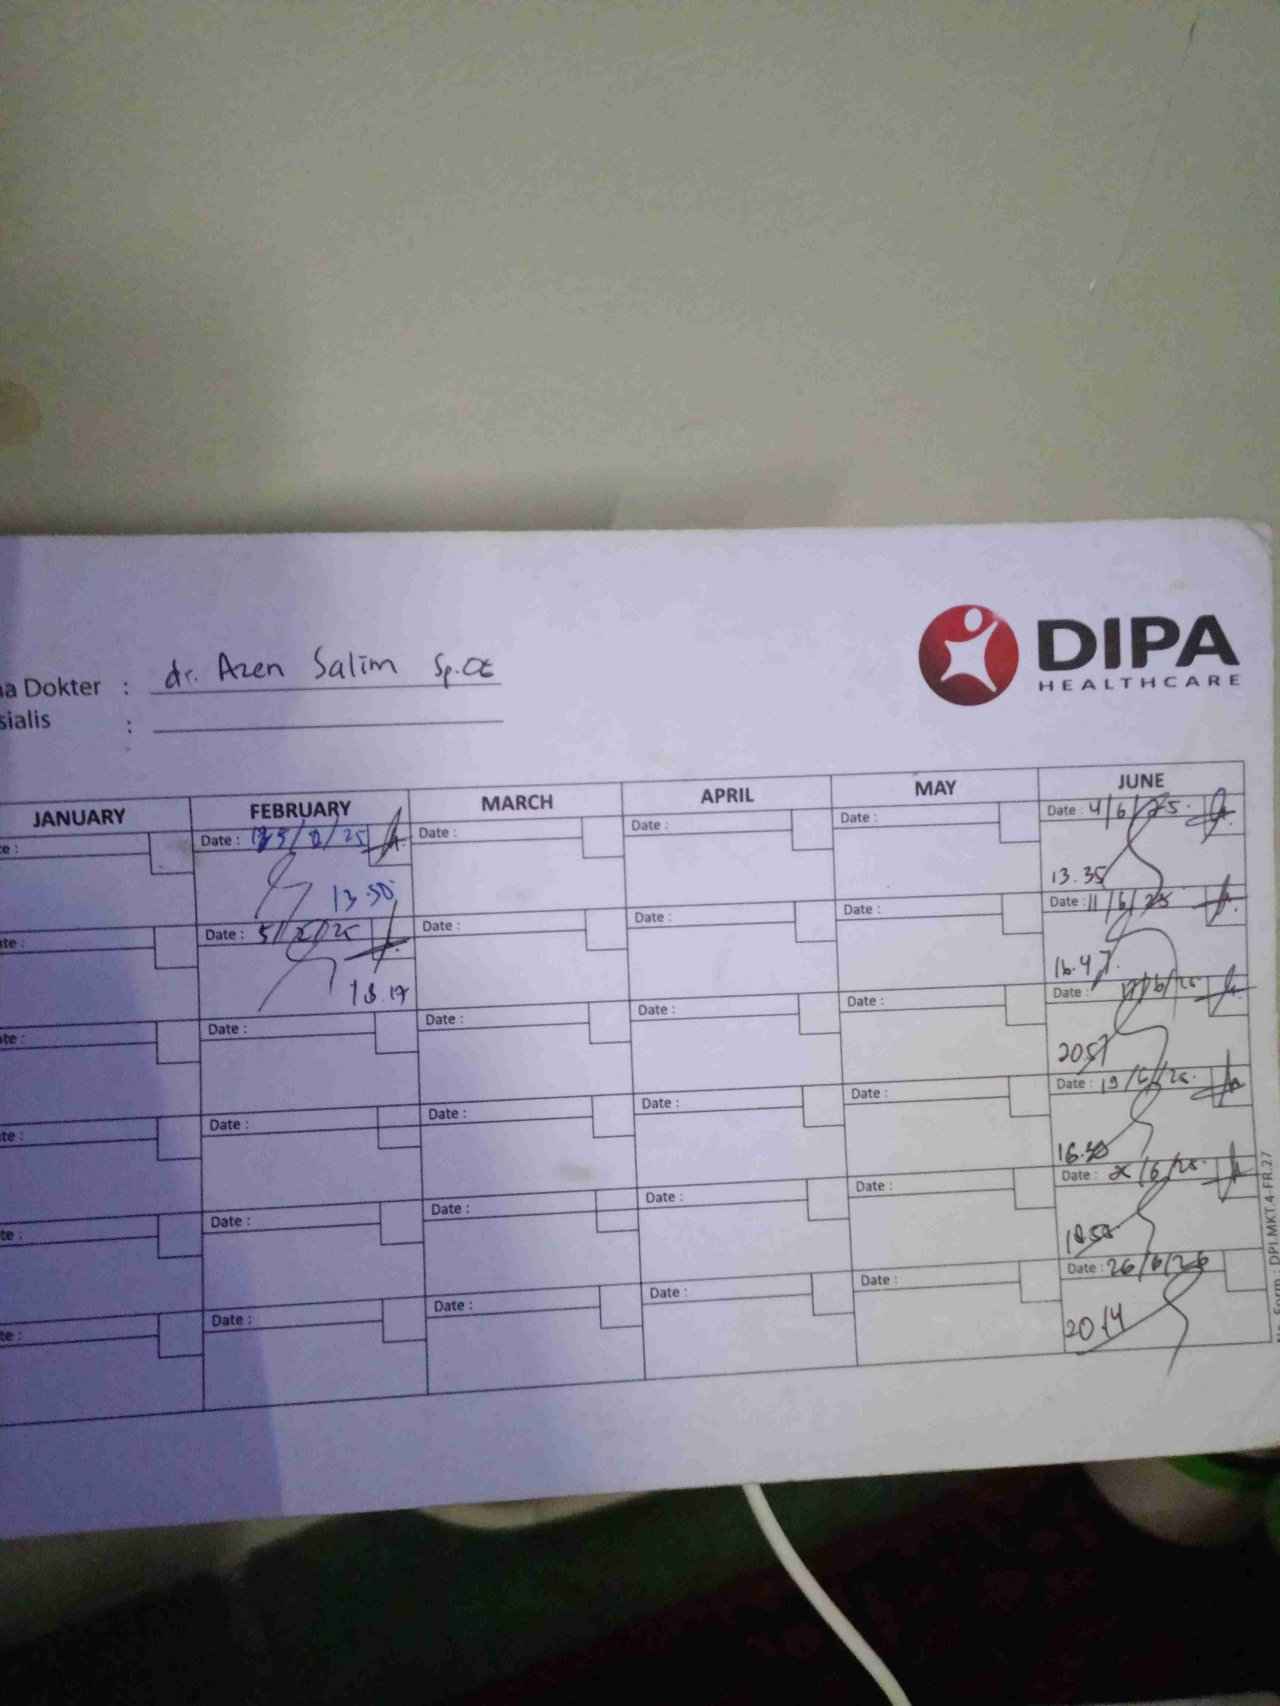 DIPA
HEALTHCARE
na Dokter : dr. Azen Salim Sp.OG
sialis :
JANUARY FEBRUARY MARCH APRIL MAY JUNE
te : Date : /25 Date : Date : Date : Date : 4/6/25
13.50 13.35
te : Date : 5/2/25 Date : Date : Date : Date : 11/6/25
18.17 16.47
te : Date : Date : Date : Date : Date : 17/6/25
20.57
te : Date : Date : Date : Date : Date : 19/6/25
16.30
te : Date : Date : Date : Date : Date : /6/25
18.58
te : Date : Date : Date : Date : Date : 26/6/25
20.14
Form : DPI.MKT.4-FR.27